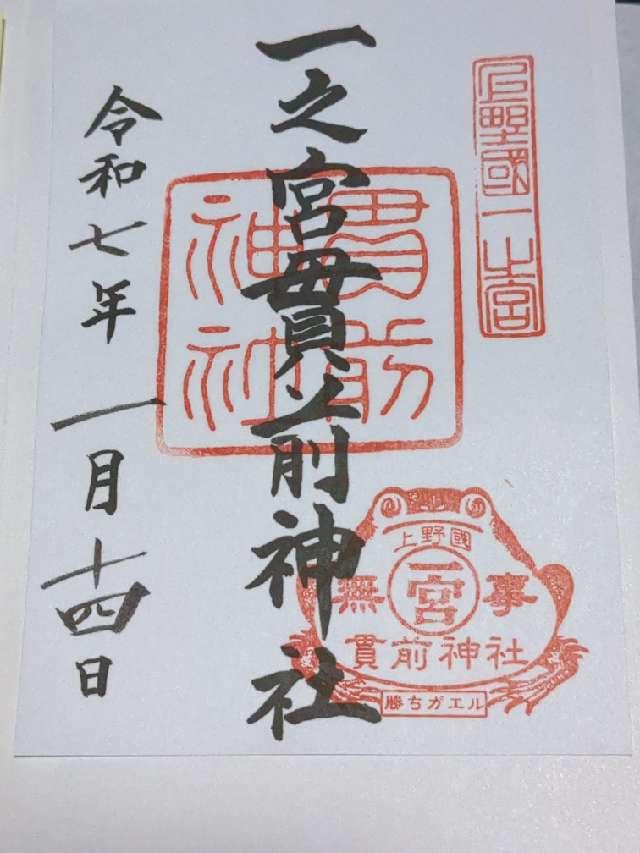 上野國一之宮
一之宮貫前神社
貫前
神社
令和七年一月十四日
上野國
一宮
無事
貫前神社
勝ちガエル